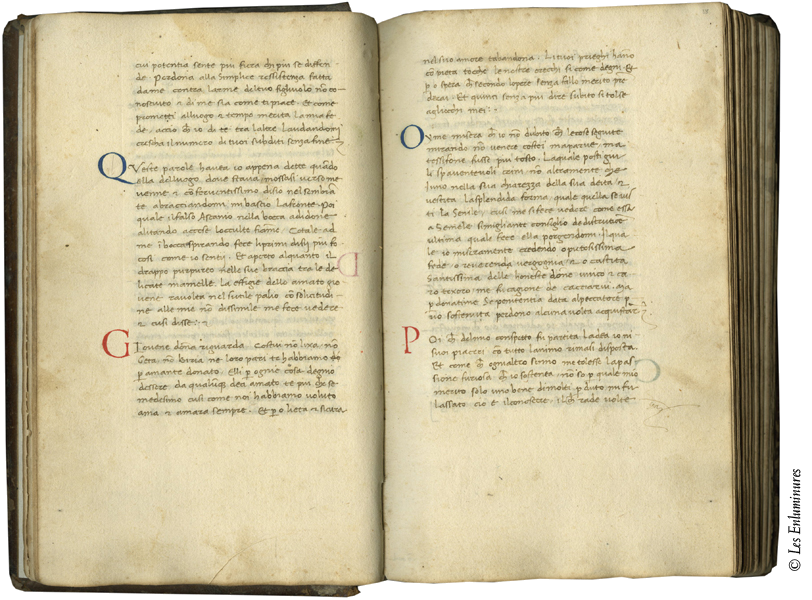 cui potentia sente piu fiera chi piu se diffen
de. Perdona alla simplice ressistenza fatta
da me contra larme del tuo figliuolo nō co
nosciuto & di me sia come ti piace. Et come
prometti alluogo & tempo merita la mia fe
de. accio ch io di te tra laltre laudandomi
cresca il numero di tuoi subditi senza fine
Queste parole hauea io appena dette quādo
ella del luogo doue staua mossasi uerso me
uenne & cō feruentissimo disio nel sembiā
te abracciandomi mi bascio la fronte. Poi
quale il falso Ascanio nella bocca a didone
alitando accese locculte fiāme. Cotale ad
me i bocca spirando fece li primi disii piu fo
cosi como io senti. Et aperto alquanto il
drappo purpureo nelle sue braccia tra le de
licate mamelle. La effigie dello amato gio
uene rauolta nel sutile palio cō solicitudi
ne alle mie nō dissimile me fece uedere
& cusi disse
Giouene dōna riguarda. Costui nō lixa. nō
Geta. nō birria me loro pari te habbiamo
p amante donato. Elli p ognie cosa degnio
dessere da qualuque dei amato te piu che se
medesimo cusi come noi habbiamo uoluto
ama & amara sempre. Et p o lieta & sicura
nel suo amore tabandona. Li tuoi prieghi hano
cō pieta tocche le nostre orecchi si come degni. Et
p o spera ch secondo lopere senza fallo merito pre
derai. Et quinci senza piu dire subito si tolse
agliocchi mei
Oyme misera ch io nō dubito ch le cose seguite
mirando nō uenere costei maparue. ma
tessifone fusse piu tosto. La quale posti giu
li spauenteuoli crini nō altramente che
iuno nella sua chiarezza della sua deita &
uestita la splendida forma quale quella se uesti
ti la senile. cusi me si fece uedere come essa
a Semele simigliante consiglio de distrutione
ultima quale fece ella porgendomi. Il qua
le io miseramente credendo o piatosissima
fede. o reuerenda uergognia & o castita
Santissima delle honeste done unico & ca
ro texoro me fu cagione de cacciarui. ma
pdonatime. Se penitentia data al peccatore p
uo sostenuta perdono alcuna uolta acquistar
Poi ch del mio conspetto fu partita La dea io ni
suoi piaceri cō tutto lanimo rimasi disposta.
Et come ch ognaltro senno me tolesse la pas
sione furiosa ch io sostenea. nō so p quale mio
merito solo uno bene di molti pduto mi fu
lassato cio e il conoscere. Ch rade uolte
© Les Enluminures